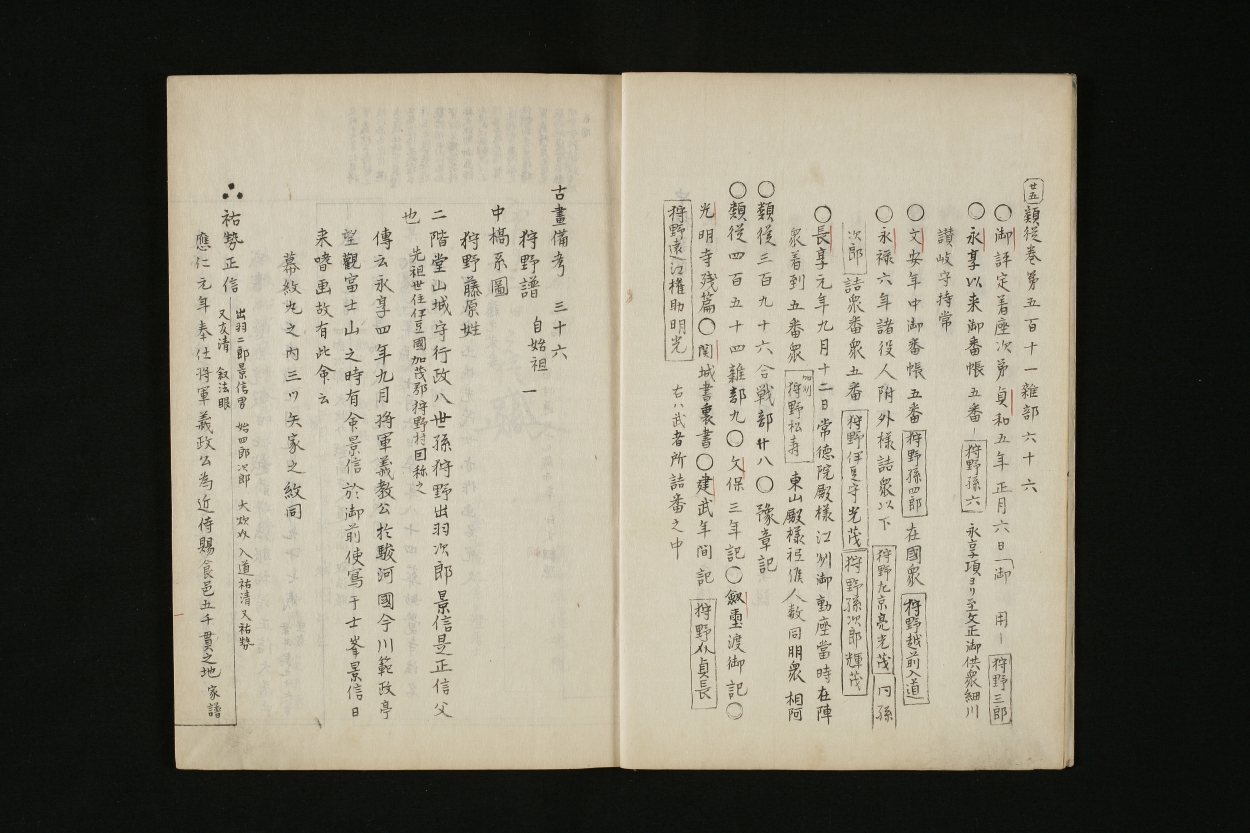 廿五 類従巻第五百十一雑部六十六
〇御評定着座次第貞和五年正月六日「御　用ー 狩野三郎
〇永享以来御番帳五番ー 狩野孫六 永享項ヨリ至文正御供衆細川
讃岐守持常
〇文安年中御番帳五番 狩野孫四郎 在國衆 狩野越前入道
〇永禄六年諸役人附外様詰衆以下 狩野左京亮光茂 同孫
次郎 詰衆番衆五番 狩野伊豆守光茂 狩野孫次郎輝茂
〇長享元年九月十二日常徳院殿様江州御動座當時在陣
衆着到五番衆 狩野松寿 東山殿様祗候人数同朋衆 相阿
〇類従三百九十六合戦部廿八〇豫章記
〇類従四百五十四雑部九〇文保三年記〇劔璽渡御記〇
光明寺残篇〇関城書裏書〇建武年間記 狩野介貞長
狩野遠江権助明光 右ハ武者所詰番之中
古畫備考 三十六
狩野譜 自始祖一
中橋系圖
狩野藤原姓
二階堂山城守行政八世孫狩野出羽次郎景信是正信父
也 先祖世住伊豆國加茂郡狩野村因称之
傳云永享四年九月将軍義教公於駿河國今川範政亭
望觀富士山之時有命景信於御前使寫于士峯景信日
来嗜画故有此命云
幕紋丸之内三ツ矢家之紋同
祐勢正信 出羽二郎景信男 始四郎次郎 大炊助 入道祐清又祐勢
又友清 叙法眼
應仁元年奉仕将軍義政公為近侍賜食邑五千貫之地 家譜